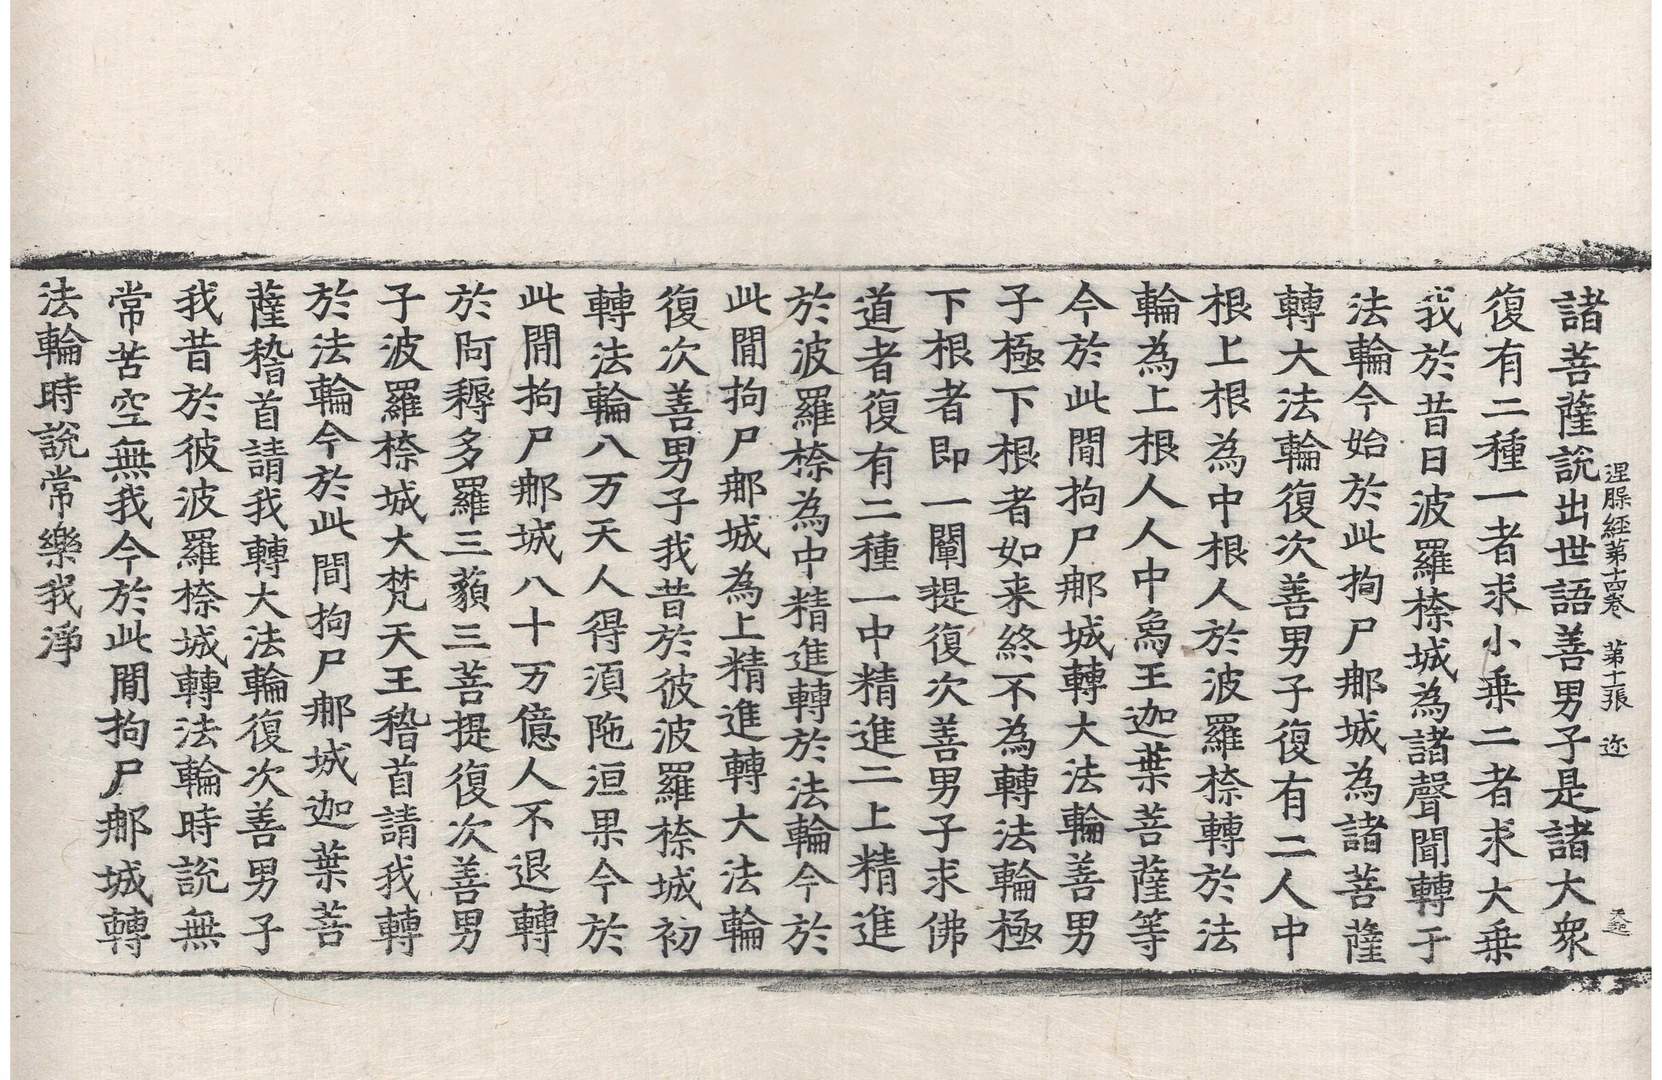 涅脲經第十四卷 第十張 迩 天玄
諸菩薩說出世語善男子是諸大衆
復有二種一者求小乗二者求大乗
我於昔日波羅㮈城為諸聲聞轉于
法輪今始於此拘尸那城為諸菩薩
轉大法輪復次善男子復有二人中
根上根為中根人於波羅㮈轉於法
輪為上根人人中烏王迦葉菩薩等
今於此間拘尸那城轉大法輪善男
子極下根者如来終不為轉法輪極
下根者即一闡提復次善男子求佛
道者復有二種一中精進二上精進
於波羅㮈為中精進轉於法輪今於
此間拘尸那城為上精進轉大法輪
復次善男子我昔於彼波羅㮈城初
轉法輪八万天人得湏陁洹果今於
此間拘尸那城八十万億人不退轉
於阿耨多羅三藐三菩提復次善男
子波羅㮈城大梵天王稽首請我轉
於法輪今於此間拘尸那城迦葉菩
薩稽首請我轉大法輪復次善男子
我昔於彼波羅㮈城轉法輪時說無
常苦空無我今於此間拘尸那城轉
法輪時說常樂我淨